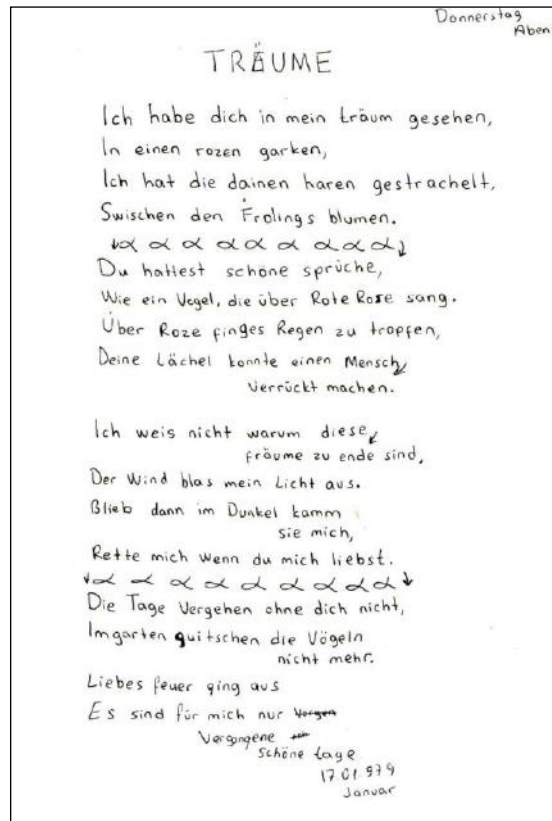 Donnerstag
Aben
TRÄUME
Ich habe dich in mein träum gesehen,
In einen rozen garken,
Ich hat die dainen haren gestrachelt,
Swischen den Frolings blumen.
Du hattest schöne sprüche,
Wie ein Vogel, die über Rote Rose sang.
Über Roze finges Regen zu tropfen,
Deine Lächel konnte einen Mensch
verrückt machen.
Ich weis nicht warum diese
träume zu ende sind,
Der Wind blas mein Licht aus.
Blieb dann im Dunkel kamm
sie mich,
Rette mich wenn du mich liebst.
Die Tage Vergehen ohne dich nicht,
Imgarten quitschen die Vögeln
nicht mehr.
Liebes feuer ging aus
Es sind für mich nur
Vergangene
schöne tage
17.01.979
Januar